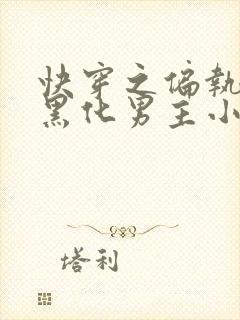 快穿之偏執
黑化男主小
塔利